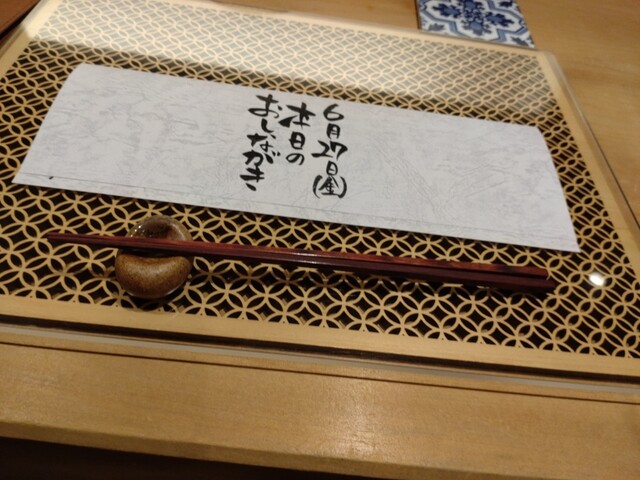 6月27日(金)
本日の
おしながき